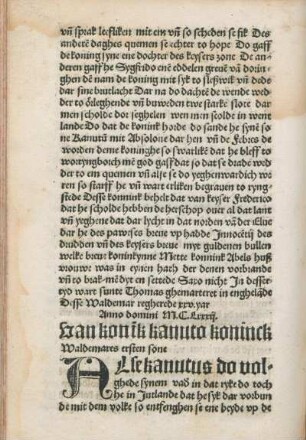 vñ sprak leefliken mit ein vñ so scheden se sik Des
anderē daghes quemen se echter to hope Do gaff
de koning syne ene dochter des keysers zone De an-
deren gaff he Sygfrido enē eddelen greuē vā dorin-
ghen dē nam de koning mit syk to sleswik vñ dede
dar sine brutlachte Dar na do dachtē de wende wed-
der to orleghende vñ buweden twe starke slote dar
men scholde dor seghelen wen men scolde in went
lande Do dat de konink horde do sande he synē so-
ne Kanutū mit Absolone dar hen vñ de Febres de
worden deme koninghe so swarlikē dat he bleff to
wortyngborch mē god gaff dat so dat se drade wed-
der to em quemen vñ alse se do yeghenwardich we-
ren so starff he vñ wart erliken begrauen to ryng-
stede Desse konnink behelt dat van keyser Frederico
dat he scholde hebben de herschop ouer al dat lant
vñ yeghene dat dar lycht in dat norden vā der Elue
dar he des pawes breue up hadde Innocētij des
drudden vñ des keysers breue myt guldenen bullen
welke breue koninkynne Mette konnink Abels huß
vrouwe was in eynen hach der denen vorbrande
vñ to brak mē dyt en settede Saxo nicht In desser
tyd wart sunte Thomas ghemarteret in enghelāde
Desse Waldemar regherede xxv. yar
Anno domini M.C.Lxxxij.
Uan konīk kanuto koninck
Waldemares ersten sone
Alse kanutus do vol-
ghede synem vad in dat ryke do toch
he in Jutlande dat hesyk dar vorbun
de mit dem volke so entfenghen se ene beyde vp de